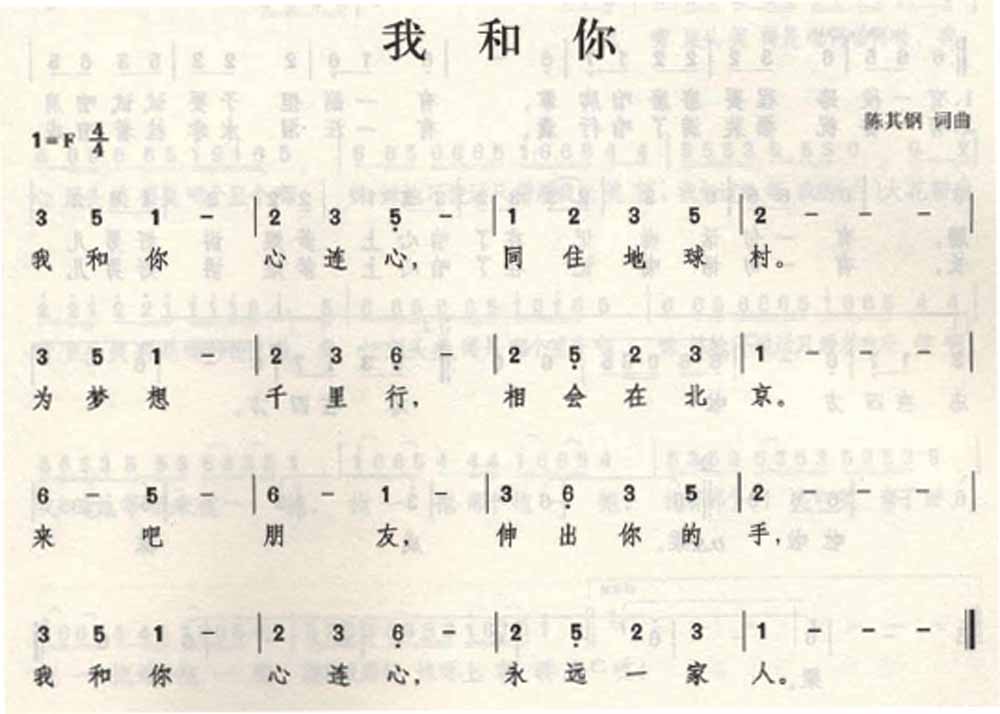 我 和 你
陈其钢 词曲
1=F 4/4
3 5 1 - | 2 3 5̣ - | 1 2 3 5 | 2 - - - |
我 和 你 心 连 心， 同 住 地 球 村。
3 5 1 - | 2 3 6̣ - | 2 5̣ 2 3 | 1 - - - |
为 梦 想 千 里 行， 相 会 在 北 京。
6 - 5 - | 6 - 1 - | 3 6 3 5 | 2 - - - |
来 吧 朋 友， 伸 出 你 的 手，
3 5 1 - | 2 3 6̣ - | 2 5̣ 2 3 | 1 - - - ‖
我 和 你 心 连 心， 永 远 一 家 人。